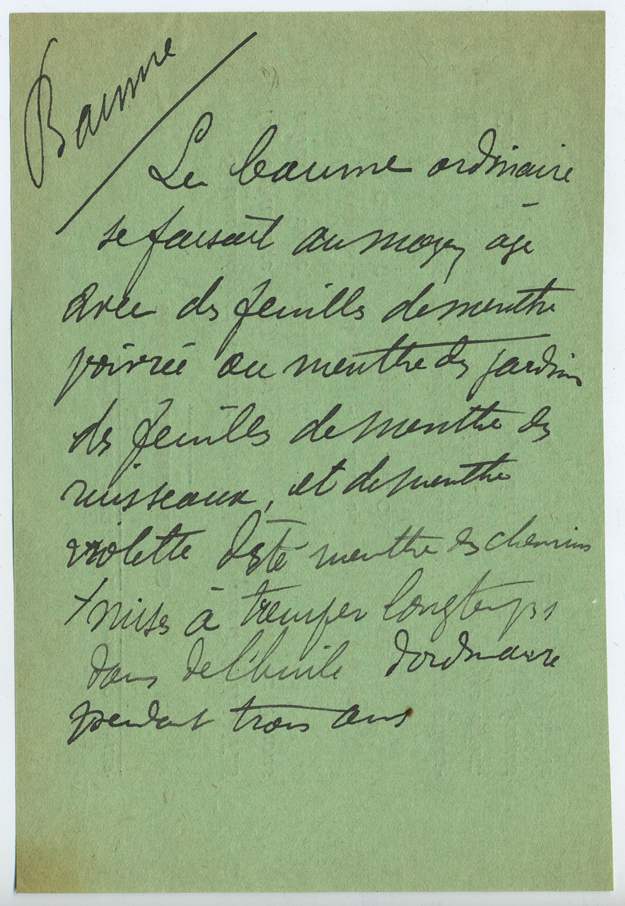 Baume
Le baume ordinaire
se faisait au moyen âge
avec des feuilles de menthe
poivrée ou menthe des jardins
des feuilles de menthe des
ruisseaux, et de menthe
violette d'été menthe des chemins
mises à tremper longtemps
dans de l'huile d'ordinaire
pendant trois ans